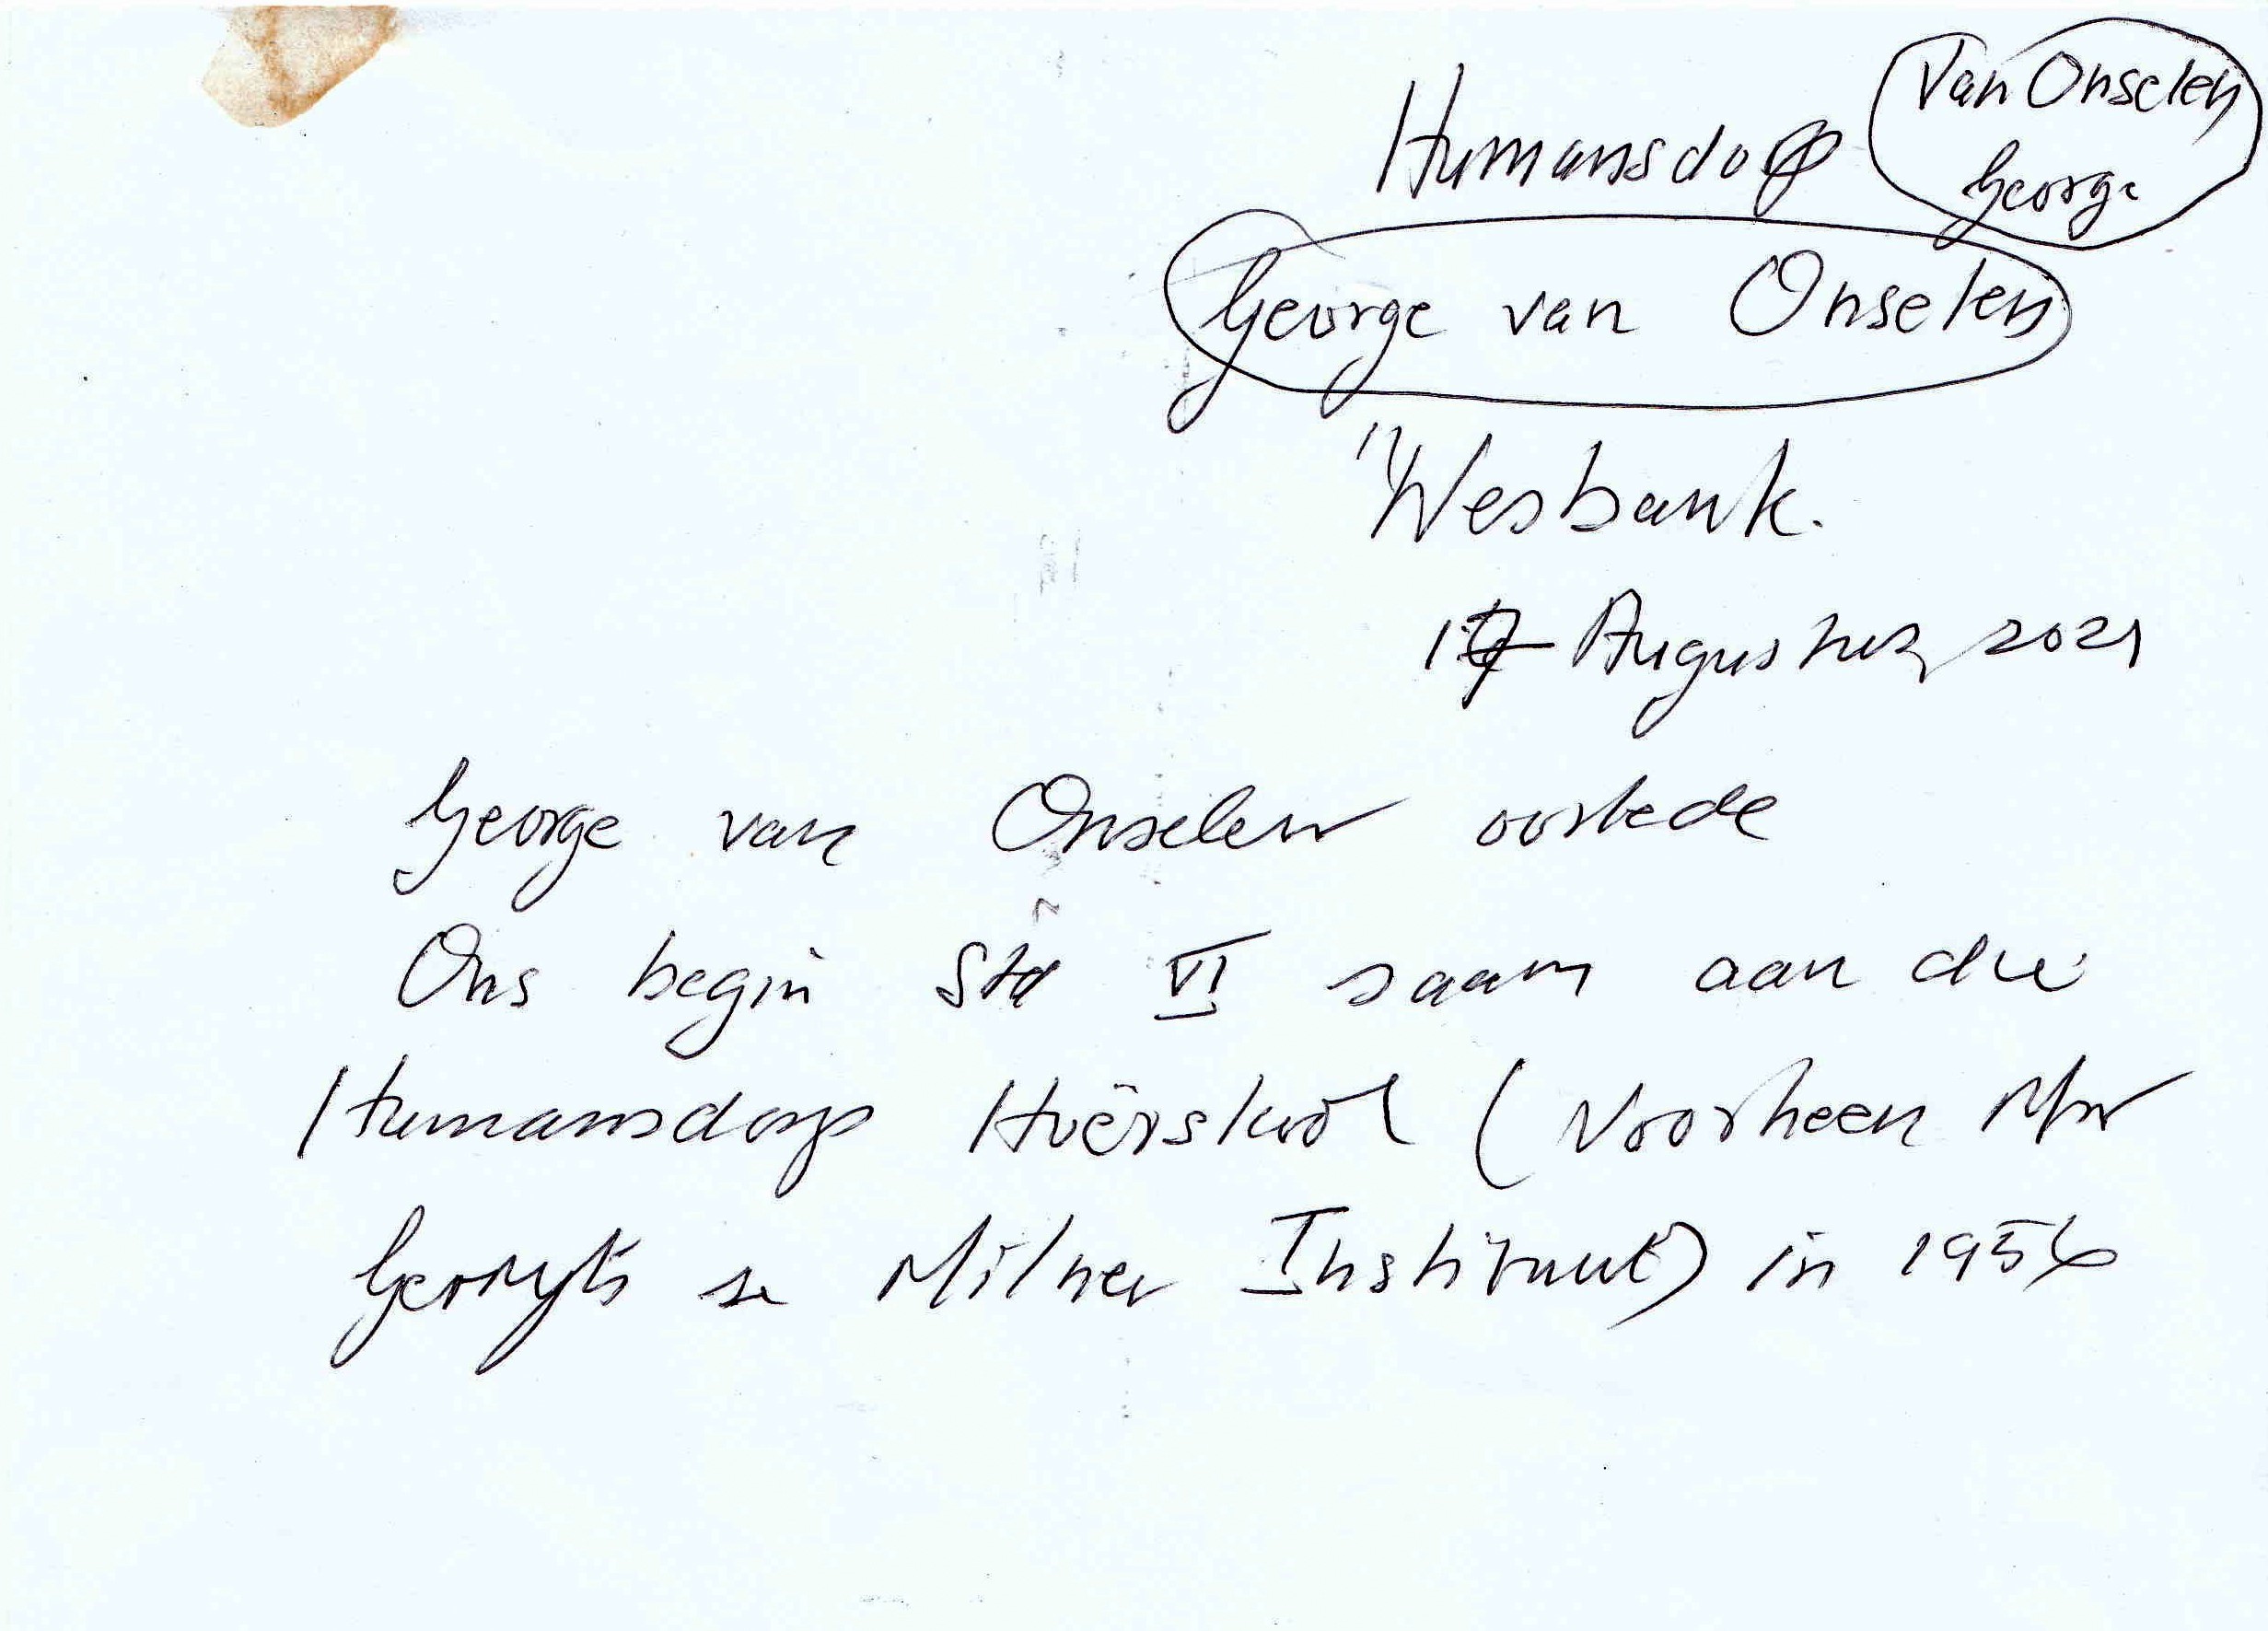 Van Onselen
George
Humansdorp
George van Onselen
Wesbank.
17 Augustus 2021
George van Onselen oorlede
Ons begin Std VI saam aan die
Humansdorp Hoërskool (Voorheen Mnr
se Milner Instituut) in 1956